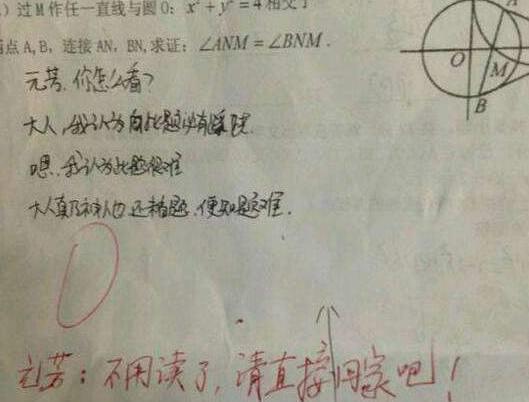 )过M作任一直线与圆O：x²+y²=4相交于
点A,B，连接AN，BN,求证：∠ANM=∠BNM．
元芳，你怎么看？
大人，我认为此题必有蹊跷
嗯，我认为此题很难
大人真乃神人也，还未看题，便知题难．
A
O
M
B
0
元芳：不用读了，请直接回家吧！